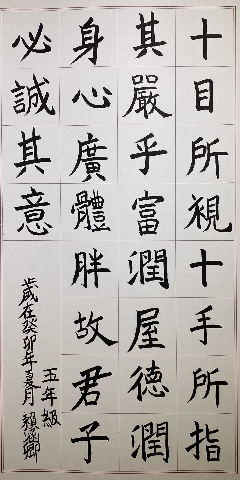 十目所視十手所指
其嚴乎富潤屋德潤
身心廣體胖故君子
必誠其意
五年級
歲在癸卯年夏月